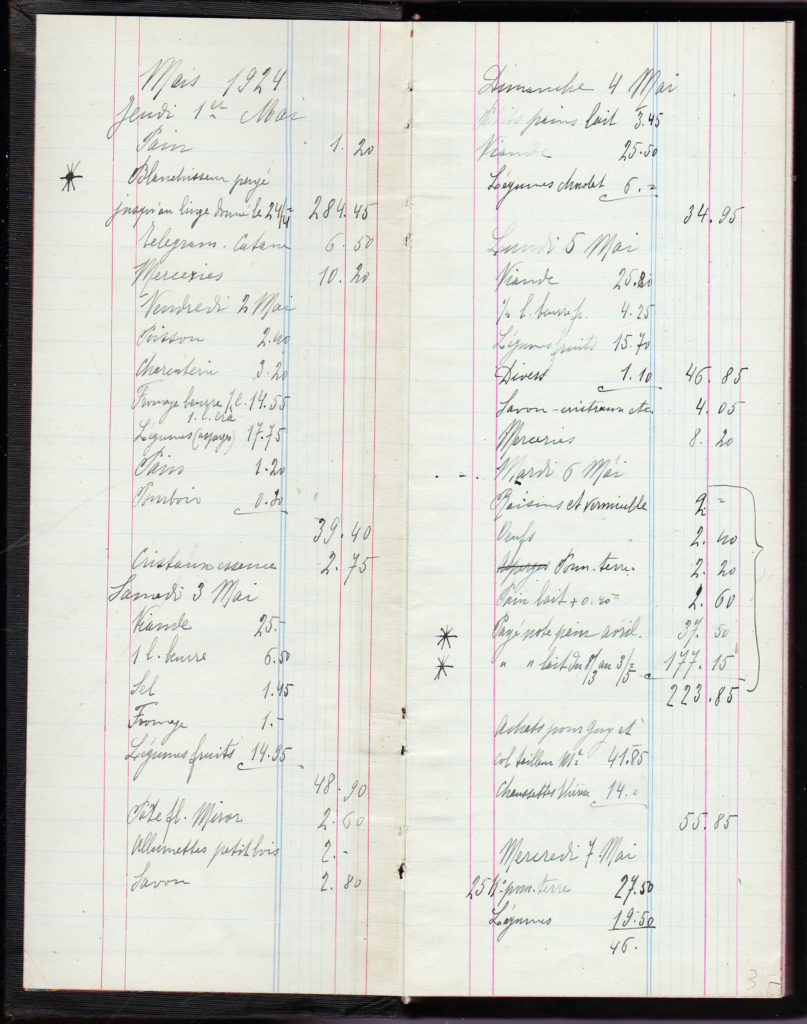 Mais 1924
Jeudi 1er Mai
Pain 1.20
Blanchisseur payé
jusqu'au linge donné le 24/4 284.45
Telegram. Catane 6.50
Merceries 10.20
Vendredi 2 Mai
Poisson 2.40
Charcuterie 3.20
Fromage beurre 1/2 l. 14.55
Légumes (asperges) 17.75
Pain 1.20
Pourboir 0.30
39.40
Cristaux essence 2.75
Samedi 3 Mai
Viande 25.-
1 l. beurre 6.50
Sel 1.45
Fromage 1.-
Légumes fruits 14.95
48.90
Pate fl. Miror 2.60
Allumettes petit bois 2.-
Savon 2.80
Dimanche 4 Mai
Petits pains lait 3.45
Viande 25.50
Légumes 6.=
34.95
Lundi 5 Mai
Viande 25.80
1/2 l. beurre 4.25
Légumes fruits 15.70
Divers 1.10 46.85
Savon-cristaux etc. 4.05
Merceries 8.20
Mardi 6 Mai
Raisins et vermicelle 2.=
Oeufs 2.40
Pom. terre. 2.20
Pain lait + 0.40 2.60
Payé note pain avril. 37.50
" " lait du 8/3 au 3/5 177.15
223.85
Achats pour Guy et
col tailleur 41.85
Chaussettes 14.=
55.85
Mercredi 7 Mai
25 K° pom. terre 27.50
Légumes 19.50
46.
3